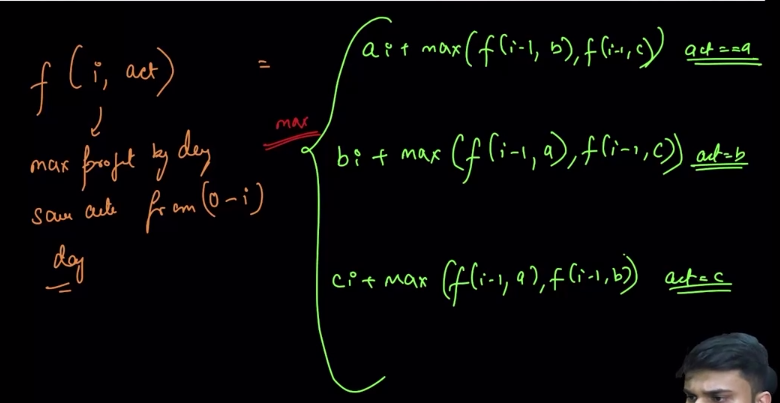 f(i, act) =
max profit by doing
some acts from (0-i)
day
max
ai + max(f(i-1, b), f(i-1, c)) act==a
bi + max(f(i-1, a), f(i-1, c)) act=b
ci + max(f(i-1, a), f(i-1, b)) act=c